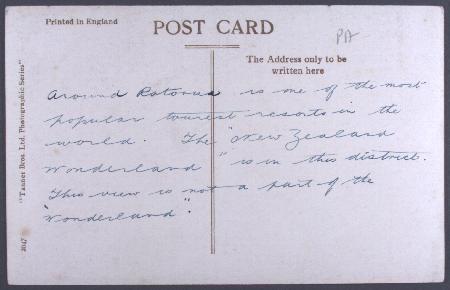 Printed in England
POST CARD
PA
The Address only to be
written here
Around Rotorua is one of the most
popular tourest resorts in the
world. The "New Zealand
Wonderland" is in this district.
This view is not a part of the
"Wonderland".
"Tanner Bros. Ltd. Photographic Series"